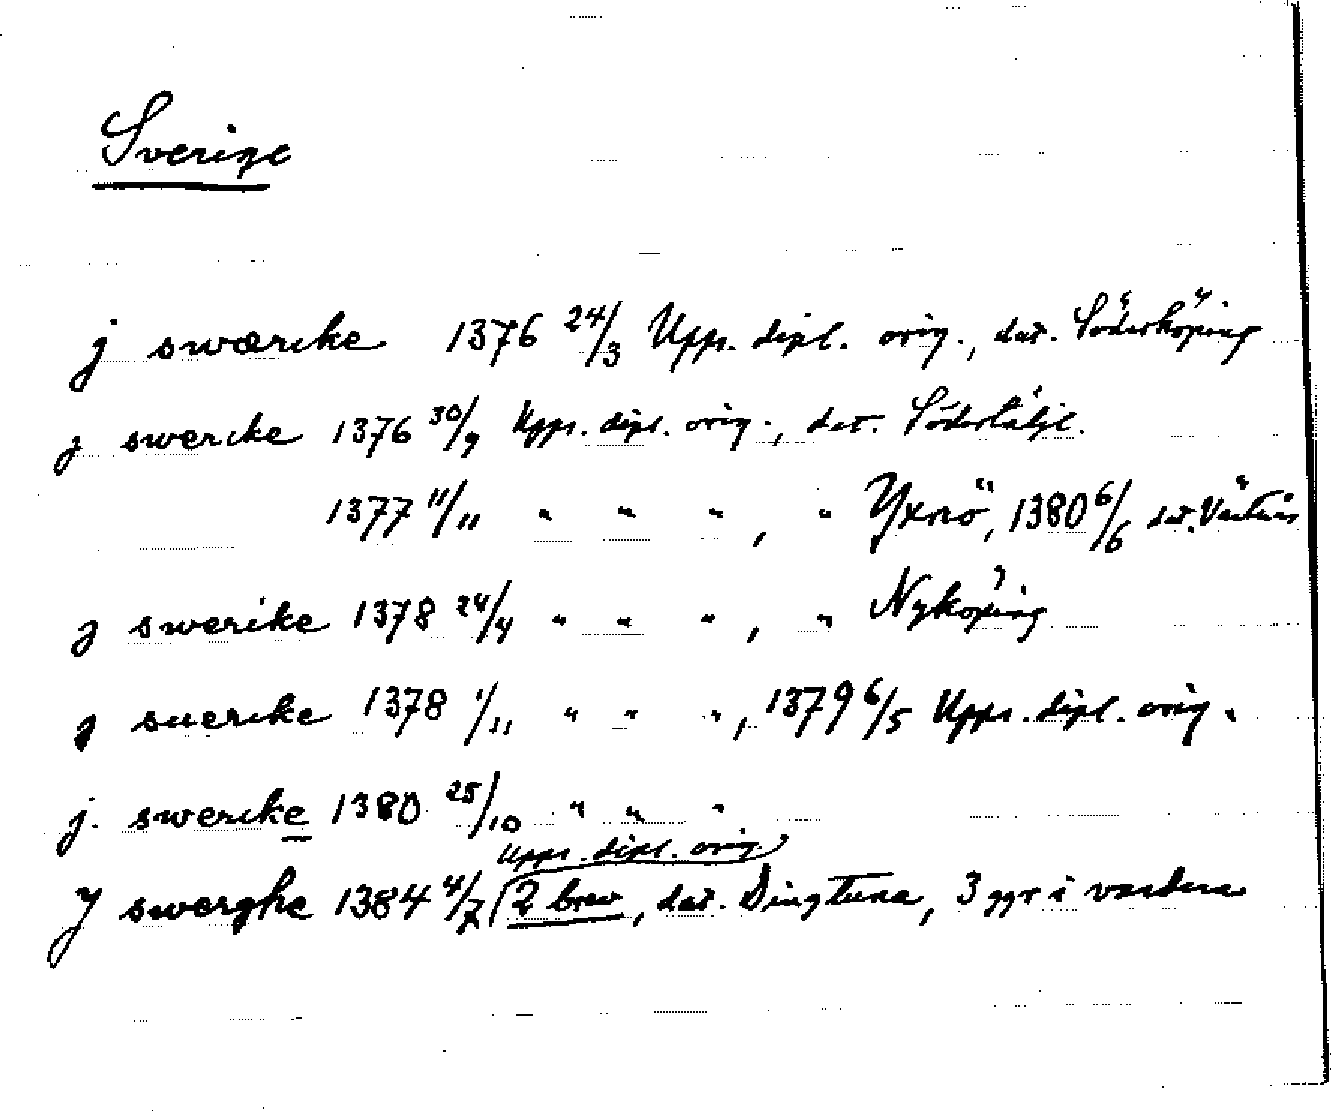 Sverige
j swærike 1376 24/3 Upps. dipl. orig., dat. Söderköping
j swerike 1376 30/9 Upps. dipl. orig., dat. Södertälje.
1377 11/11 " " " , " Yxnö, 1380 6/6 dat. Västerås
j swerike 1378 24/4 " " " , " Nyköping
j suerike 1378 1/11 " " " , 1379 6/5 Upps. dipl. orig.
j. swerike 1380 25/10 " " "
Upps. dipl. orig
J swerghe 1384 4/7 (2 brev, dat. Dingtuna, 3 ggr i vardera